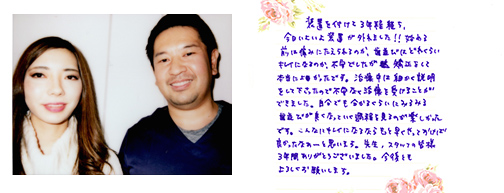 装置を付けて3年経ち、
今日いよいよ装置が外れました!! 始める
前は痛みにたえられるのか、歯並びはどれくらい
キレイになるのか、不安でしたが 矯正をして
本当に良かったです。治療中は細かく説明
をして下さったので不安なく治療を受けることが
できました。自分でも分かるぐらいにみるみる
歯並びが良くなっていく過程を見るのが楽しかった
です。こんなにキレイになるならもっと早く
良かったなぁーと思います。先生、スタッフの皆様
3年間ありがとうございました。今後とも
よろしくお願いします。